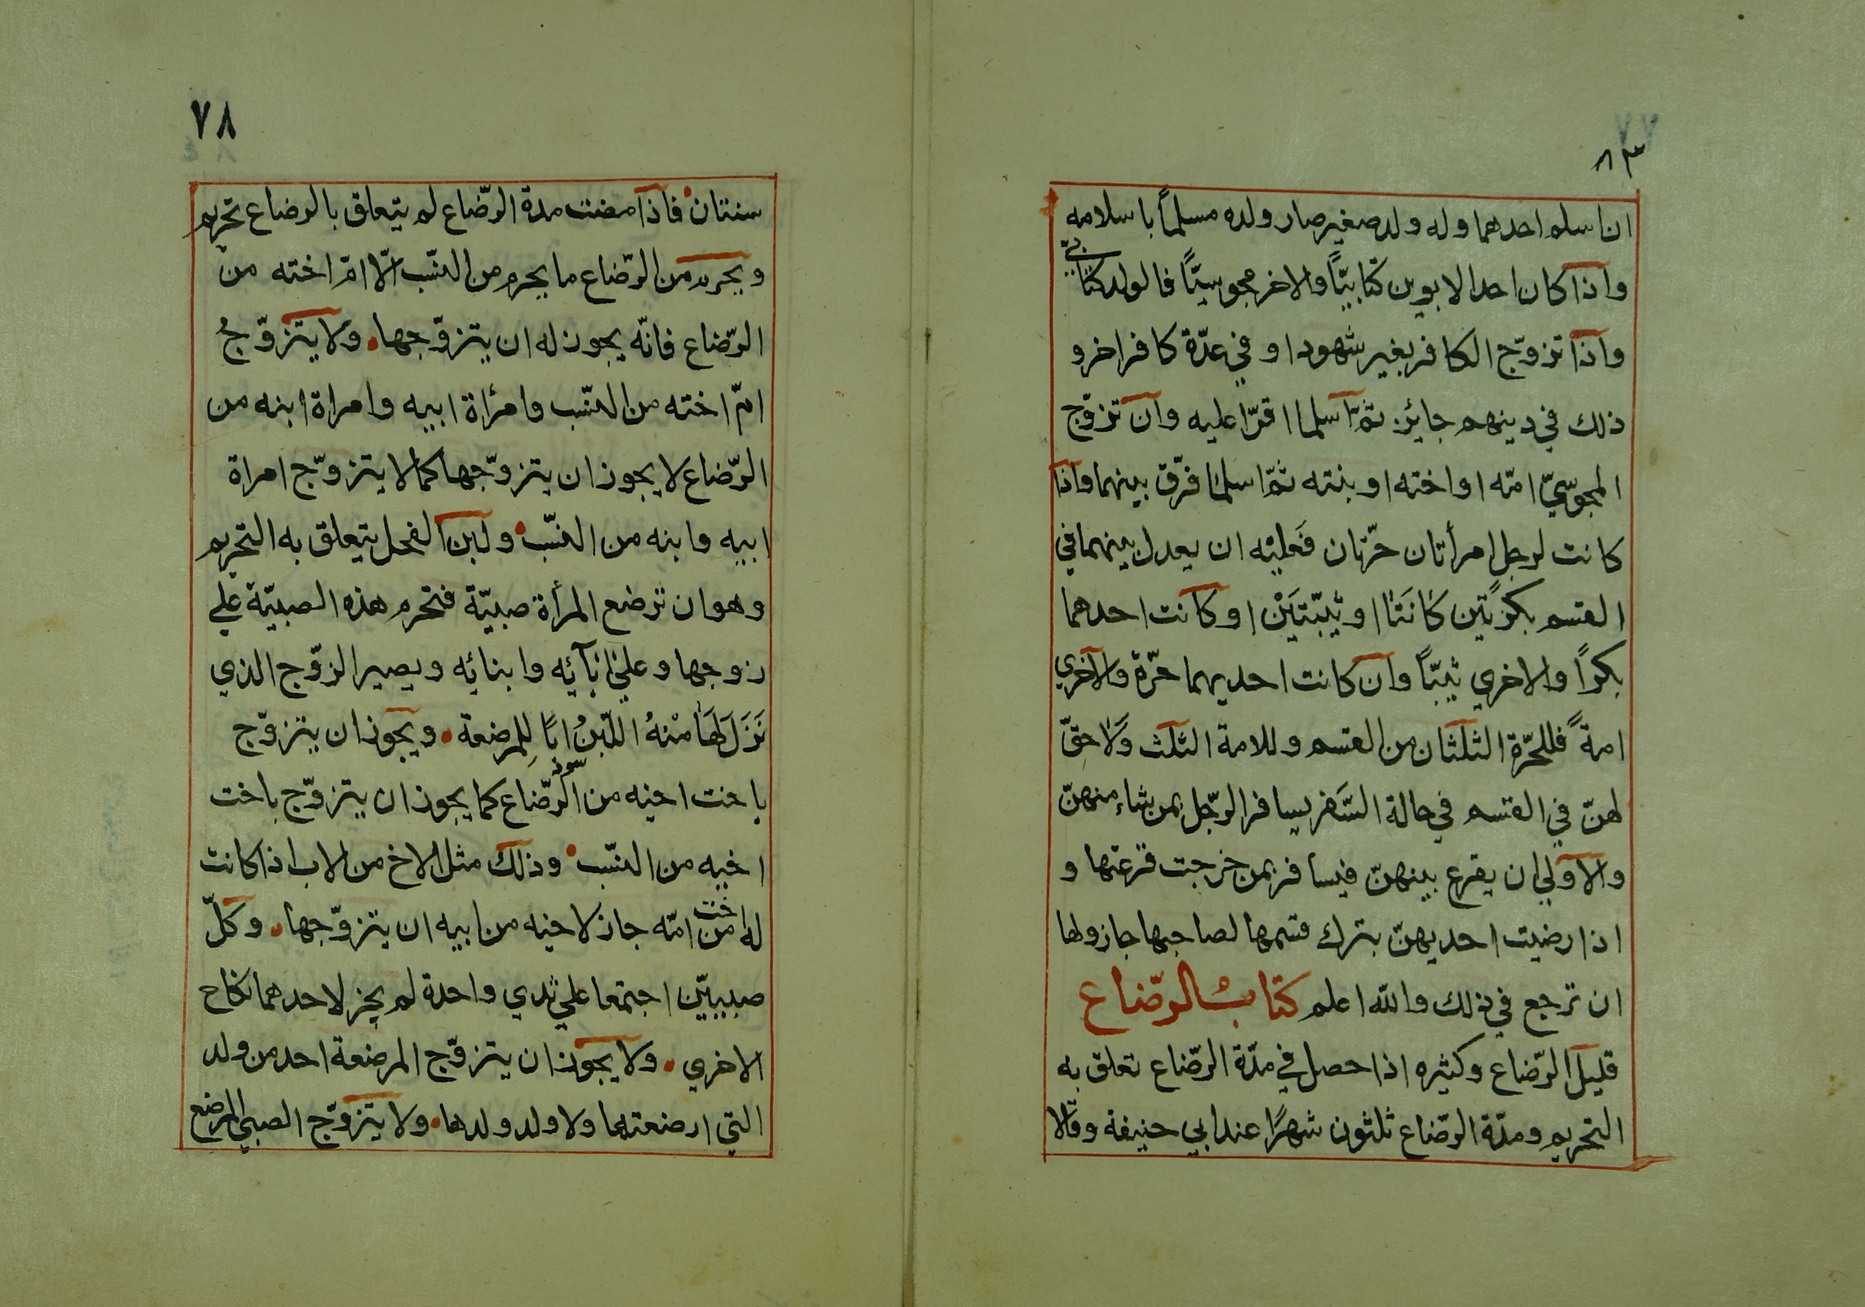 ٨٣
ان اسلم احدهما وله ولد صغير صار ولده مسلماً باسلامه
واذا كان احد الابوين كتابيّاً والاخر مجوسيّاً فالولد كتابيّ
واذا تزوّج الكافر بغير شهود او في عدّة كافر اخر و
ذلك في دينهم جايز ثمّ اسلما اقرّا عليه وان تزوّج
المجوسيّ امّه او اخته او بنته ثمّ اسلما فرّق بينهما واذا
كانت لرجل امرأتان حرّتان فَعليْه ان يعدل بينهما في
القسم بكرَتين كانَتا او ثيّبتَيْن او كانت احدهما
بكراً والاخري ثيّباً وان كانت احديهما حرّة والاخري
امةً فللحرّة الثلثان من القسم وللامة الثلث وَلا حقّ
لهنّ في القسم في حالة السَّفر يسافر الرّجل بمن شاء منهنّ
والاولي ان يقرع بينهنّ فيسافر بمن خرجت قرعتها و
اذا رضيت احديهنّ بترك قسمها لصاحبها جاز ولها
ان ترجع في ذلك والله اعلم كتابُ الرّضاع
قليل الرّضاع وكثيره اذا حصل في مدّة الرّضاع تعلق به
التحريم ومدّة الرّضاع ثلثون شهرًا عند ابي حنيفة وقالا
٧٨
سنتان فاذا مضت مدة الرّضاع لم يتعلق بالرضاع تحريم
ويحرم من الرّضاع ما يحرم من النّسب الّا امّ اخته من
الرّضاع فانّه يجوز له ان يتزوّجها ولا يتزوّجُ
امّ اخته من النّسب وامرأة ابيه وامراة ابنه من
الرّضاع لا يجوز ان يتزوّجها كما لا يتزوّج امراة
ابيه وابنه من النّسب ولبن الفحل يتعلق به التحريم
وهو ان ترضع المرأة صبيّة فتحرم هذه الصبيّة علي
زوجها وعلي اٰبآئه وابنائه ويصير الزّوج الذي
نَزَلَ لَهَا مْنهُ اللّبنُ ابًا لِلمرضعة ويجوز ان يتزوّج
باخت اخيه من الرّضاع كما يجوز ان يتزوّج باخت
اخيه من النّسب وذلك مثل الاخ من الاب اذا كانت
له اخت من امّه جاز لاخيه من ابيه ان يتزوّجها وكلّ
صبييّن اجتمعا علي ثدي واحدة لم يجز لاحدهما نكاح
الاخري ولا يجوز ان يتزوّج المرضعة احد من ولد
التي ارضعتها ولا ولد ولدها ولا يتزوّج الصبي المرضع